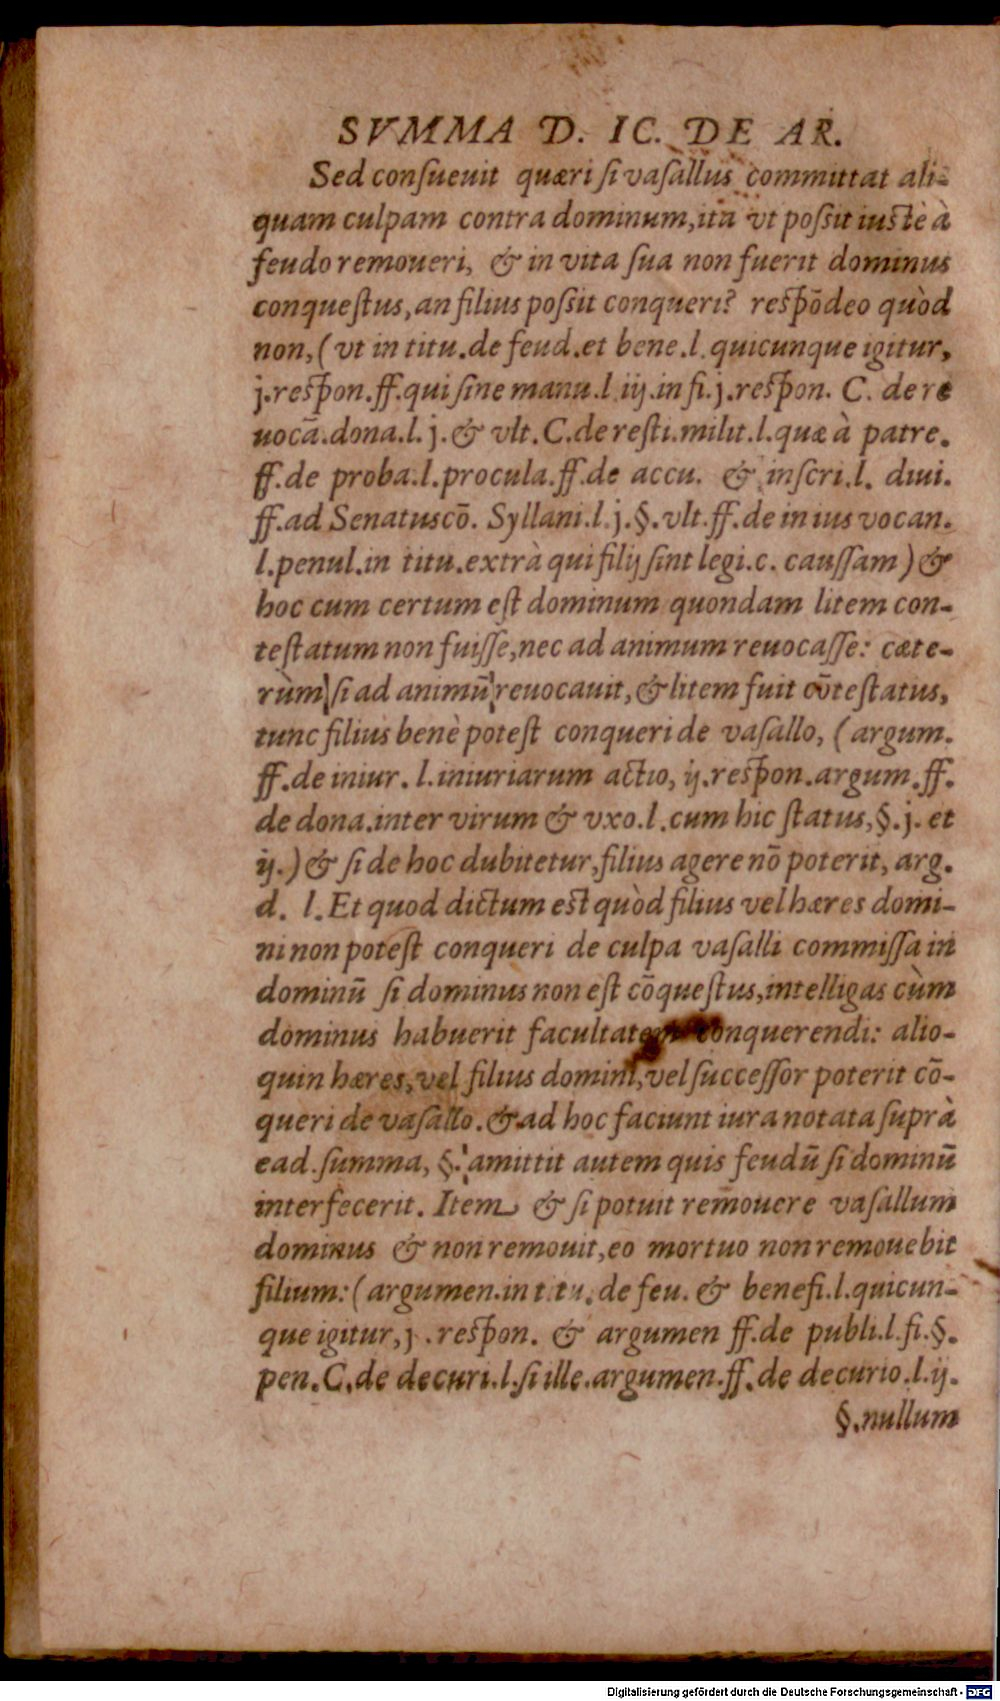 SVMMA D. IC. DE AR.
Sed consueuit quæri si vasallus committat ali-
quam culpam contra dominum, ita vt possit iustè à
feudo remoueri, & in vita sua non fuerit dominus
conquestus, an filius possit conqueri? respōdeo quòd
non, (vt in titu. de feud. et bene. l. quicunque igitur,
j. respon. ff. qui sine manu. l iij. in fi. j. respon. C. de re
uocā. dona. l. j. & vlt. C. de resti. milit. l. quæ à patre.
ff. de proba. l. procula. ff. de accu. & inscri. l. diui.
ff. ad Senatuscō. Syllani. l. j. §. vlt. ff. de in ius vocan.
l. penul. in titu. extrà qui filij sint legi. c. caussam) &
hoc cum certum est dominum quondam litem con-
testatum non fuisse, nec ad animum reuocasse: cæte-
rùm si ad animū reuocauit, & litem fuit cōtestatus,
tunc filius benè potest conqueri de vasallo, (argum.
ff. de iniur. l. iniuriarum actio, ij. respon. argum. ff.
de dona. inter virum & vxo. l. cum hic status, §. j. et
ij.) & si de hoc dubitetur, filius agere nō poterit, arg.
d. l. Et quod dictum est quòd filius vel hæres domi-
ni non potest conqueri de culpa vasalli commissa in
dominū si dominus non est cōquestus, intelligas cùm
dominus habuerit facultatem conquerendi: alio-
quin hæres, vel filius domini, vel successor poterit cō-
queri de vasallo. & ad hoc faciunt iura notata suprà
ead. summa, §. amittit autem quis feudū si dominū
interfecerit. Item & si potuit remouere vasallum
dominus & non remouit, eo mortuo non remouebit
filium: (argumen. in titu. de feu. & benefi. l. quicun-
que igitur, j. respon. & argumen ff. de publi. l. fi. §.
pen. C. de decuri. l. si ille. argumen. ff. de decurio. l. ij.
§. nullum
Digitalisierung gefördert durch die Deutsche Forschungsgemeinschaft - DFG